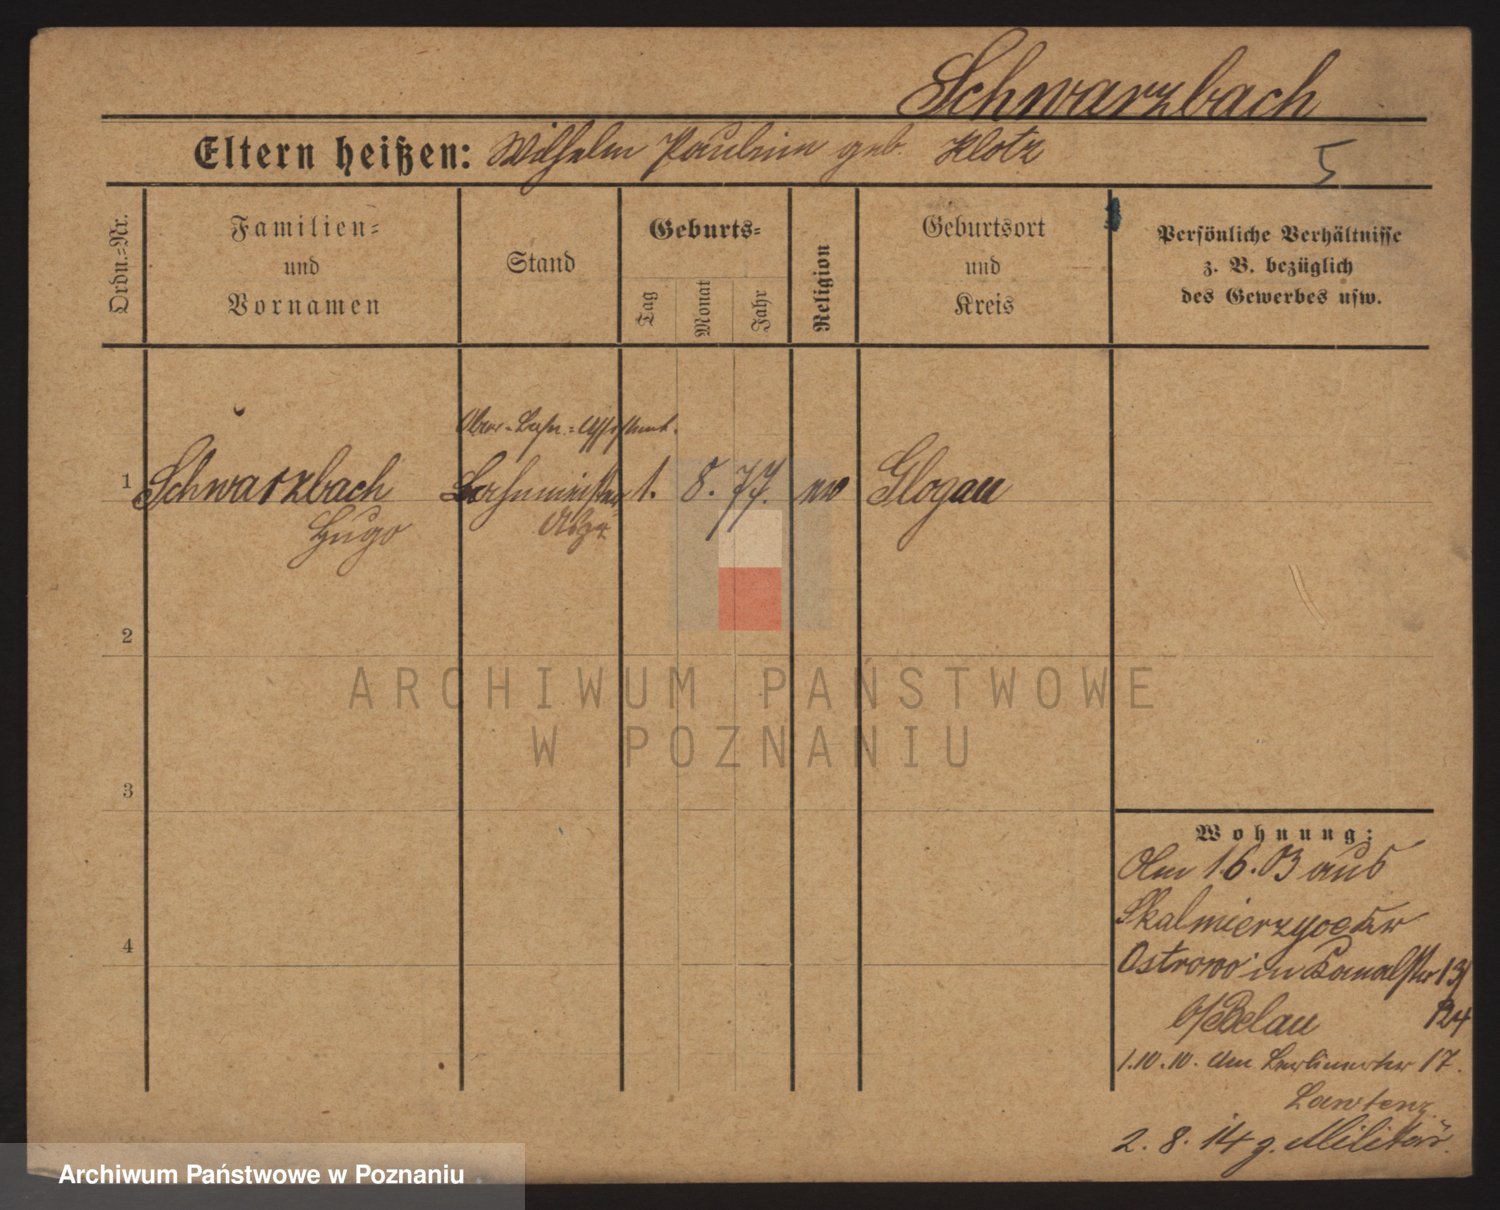 Schwarzbach
Eltern heißen: Wilhelm Pauline geb. Klotz
5
Ordn.-Nr.
Familien-
und
Vornamen
Stand
Geburts-
Tag
Monat
Jahr
Religion
Geburtsort
und
Kreis
Persönliche Verhältnisse
z. B. bezüglich
des Gewerbes usw.
1
Schwarzbach
Hugo
1. 8. 77.
Glogau
2
ARCHIWUM PAŃSTWOWE
W POZNANIU
3
4
Wohnung:
Am 1.6.03 aus
Skalmierzyce Kr
Ostrowo in Kanalstr 13/
b/Belau
1.10.10. Am Berlinerstr 17.
2. 8. 14 z. Militär.
Archiwum Państwowe w Poznaniu